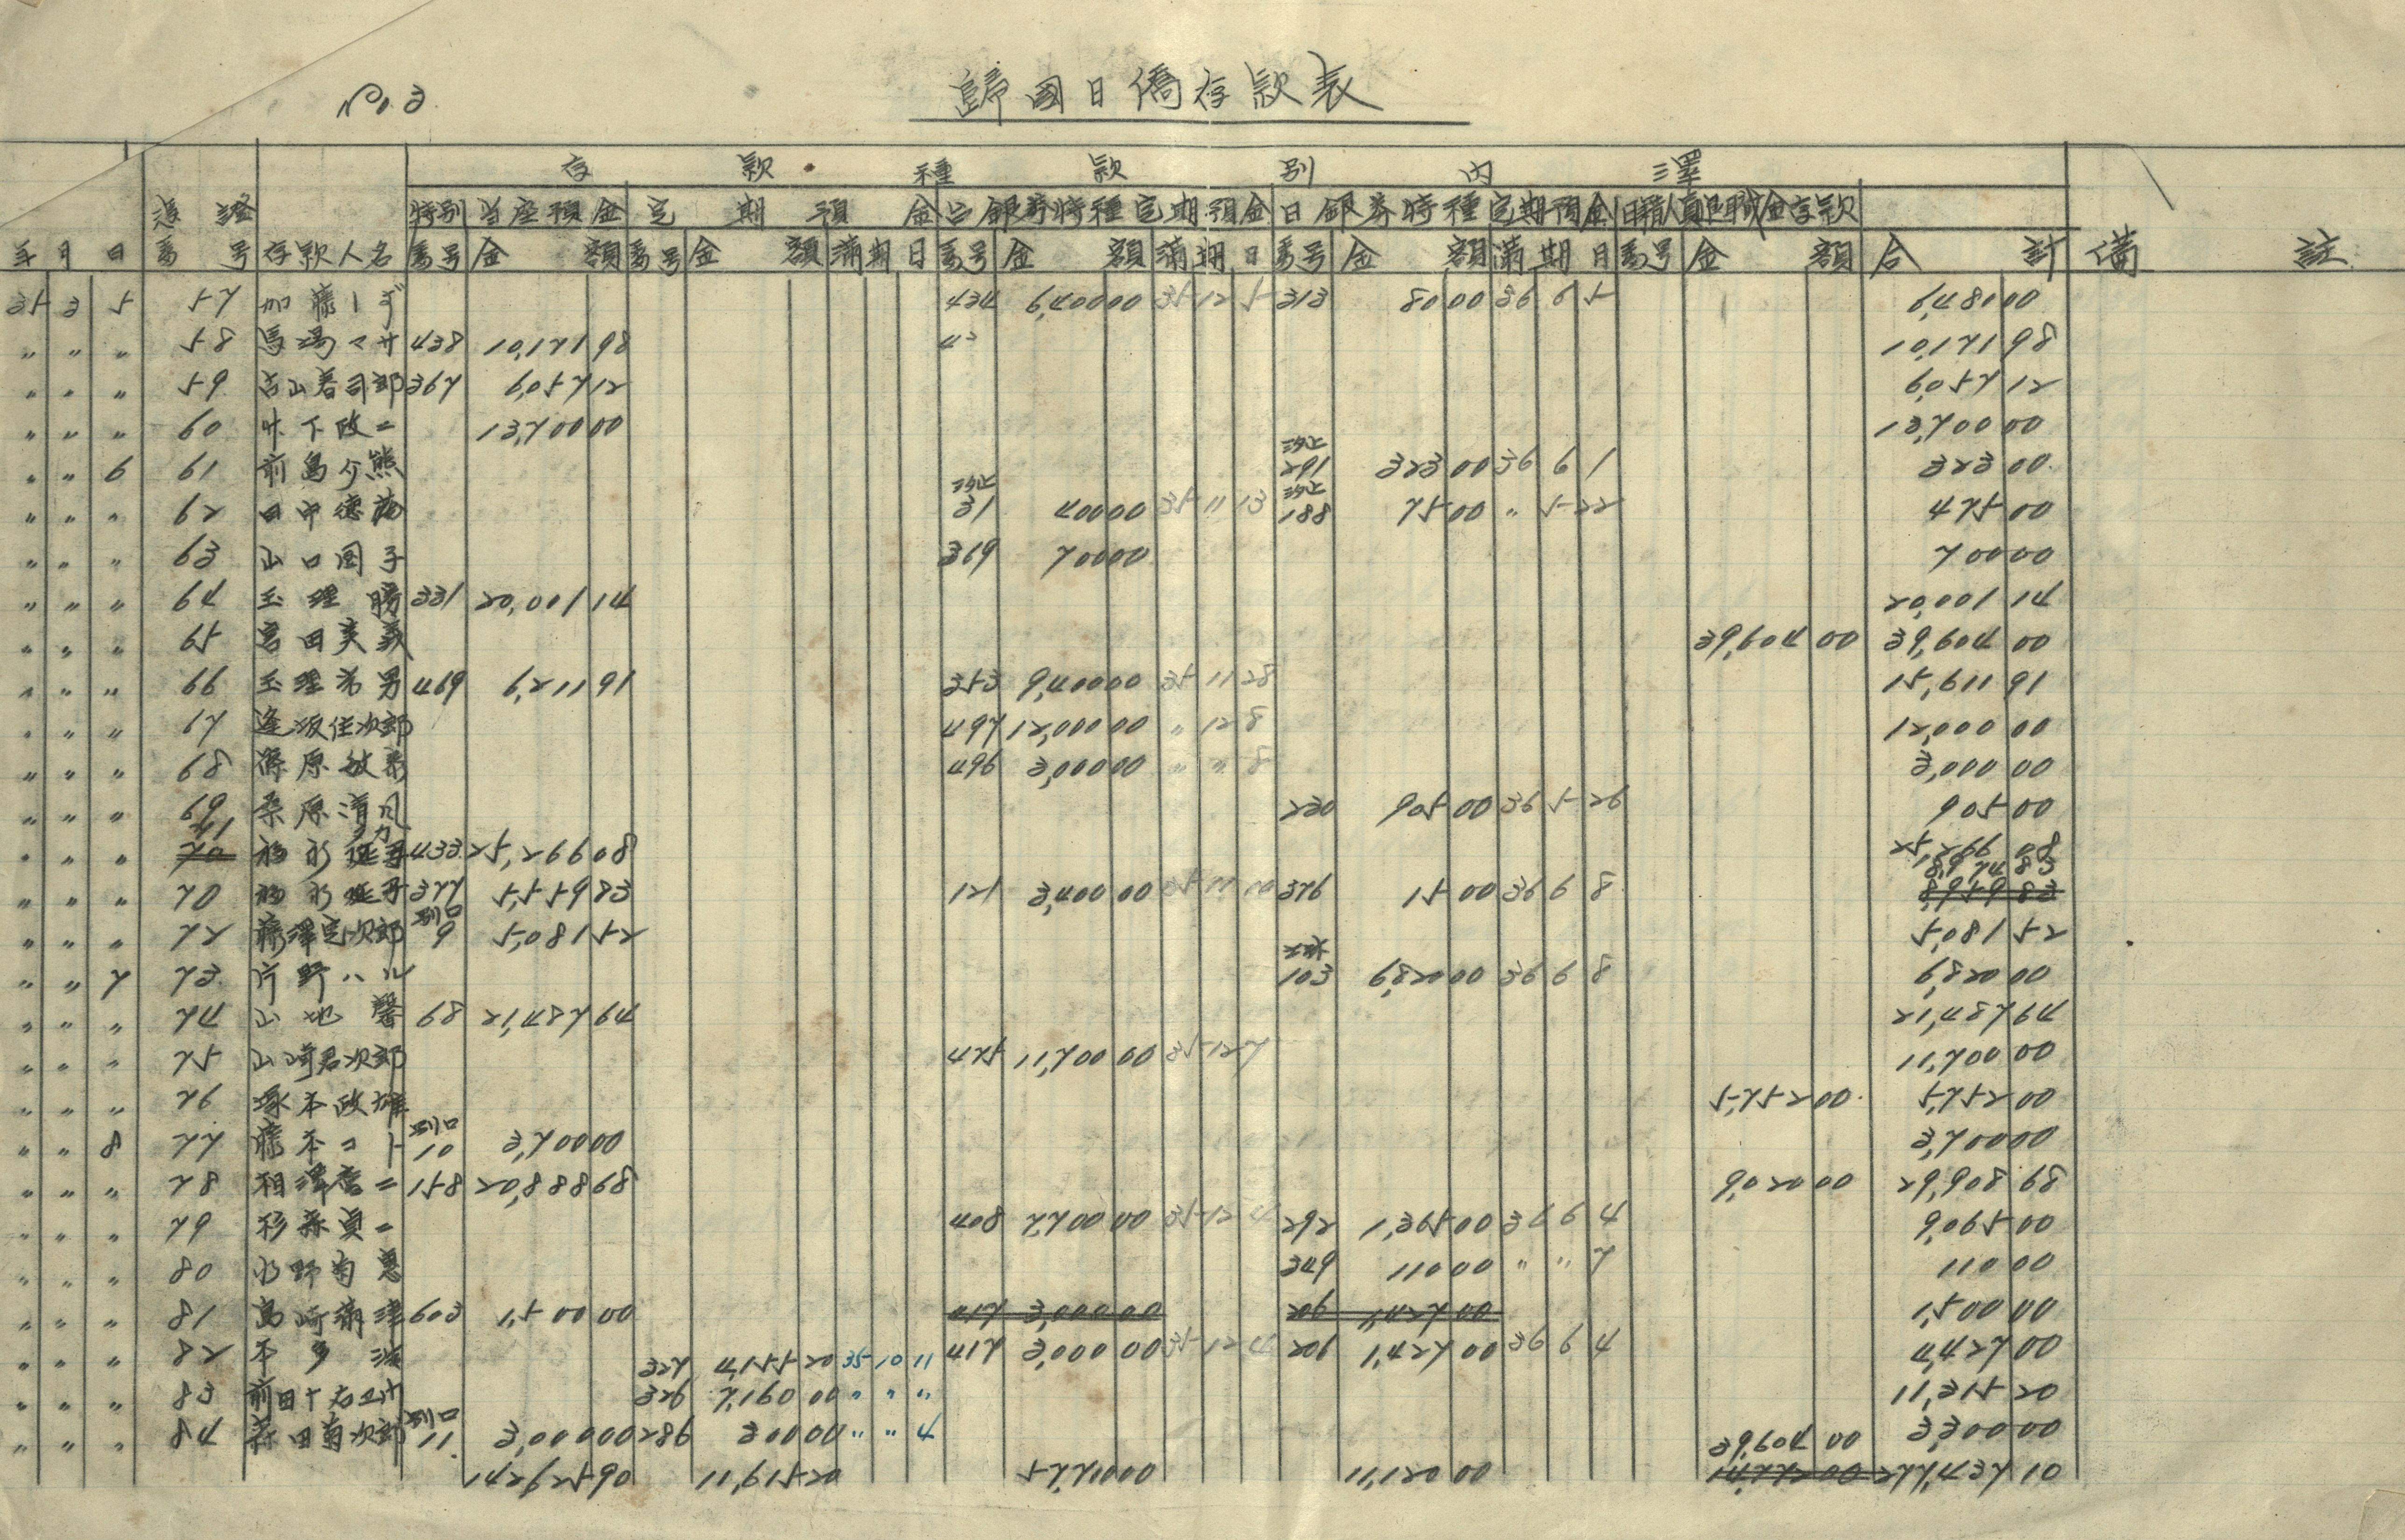 No. 3
歸國日僑存款表
存款種款別内澤
憑證 特別当座預金 定期預金 台銀券特種定期預金 日銀券特種定期預金 日籍人員退職金存款
年 月 日 番号 存款人名 番号 金額 番号 金額 満期日 番号 金額 満期日 番号 金額 満期日 番号 金額 合計 備註
35 3 5 57 加藤 434 6,400 00 35 12 5 313 80 00 36 6 5 6,480 00
〃 〃 〃 58 馬場マサ 438 10,171 98 10,171 98
〃 〃 〃 59 古山春司郎 367 6,057 12 6,057 12
〃 〃 〃 60 下政二 13,700 00 13,700 00
〃 〃 6 61 前島 熊 291 323 00 36 6 1 323 00
〃 〃 〃 62 田中德 31 400 00 35 11 13 188 75 00 〃 5 22 475 00
〃 〃 〃 63 山口国子 369 700 00 700 00
〃 〃 〃 64 玉理 勝 331 20,001 14 20,001 14
〃 〃 〃 65 宮田美義 39,604 00 39,604 00
〃 〃 〃 66 玉理 男 469 6,211 91 353 9,400 00 35 11 28 15,611 91
〃 〃 〃 67 逢坂佳次郎 497 12,000 00 〃 12 8 12,000 00
〃 〃 〃 68 篠原敏 496 3,000 00 〃 〃 8 3,000 00
〃 〃 〃 69 桑原清 230 905 00 36 5 26 905 00
〃 〃 〃 70 71 433 25,266 08 25,266 08
〃 〃 〃 70 377 5,559 83 121 3,400 00 35 11 10 376 15 00 36 6 8 8,974 83 8,959 83
〃 〃 〃 72 藤澤定次郎 別口 9 5,081 52 5,081 52
〃 〃 7 73 片野ハル 103 6,820 00 36 6 8 6,820 00
〃 〃 〃 74 山地 馨 68 21,487 64 21,487 64
〃 〃 〃 75 山崎君次郎 475 11,700 00 35 12 7 11,700 00
〃 〃 〃 76 塚本政雄 5,752 00 5,752 00
〃 〃 8 77 藤本コト 別口 10 3,700 00 3,700 00
〃 〃 〃 78 相澤 二 158 20,888 68 9,020 00 29,908 68
〃 〃 〃 79 杉森貞二 408 7,700 00 35 12 4 292 1,365 00 36 6 4 9,065 00
〃 〃 〃 80 水野菊惠 349 110 00 〃 〃 7 110 00
〃 〃 〃 81 島崎 603 1,500 00 417 3,000 00 206 1,427 00 1,500 00
〃 〃 〃 82 本多 417 3,000 00 35 12 4 206 1,427 00 36 6 4 4,427 00
327 4,155 20 35 10 11
〃 〃 〃 83 前田十右 326 7,160 00 〃 〃 〃 11,315 20
〃 〃 〃 84 森田菊次郎 別口 11 3,000 00 286 300 00 〃 〃 4 3,300 00
39,604 00
142,625 90 11,615 20 57,700 00 11,120 00 14,772 00 277,437 10